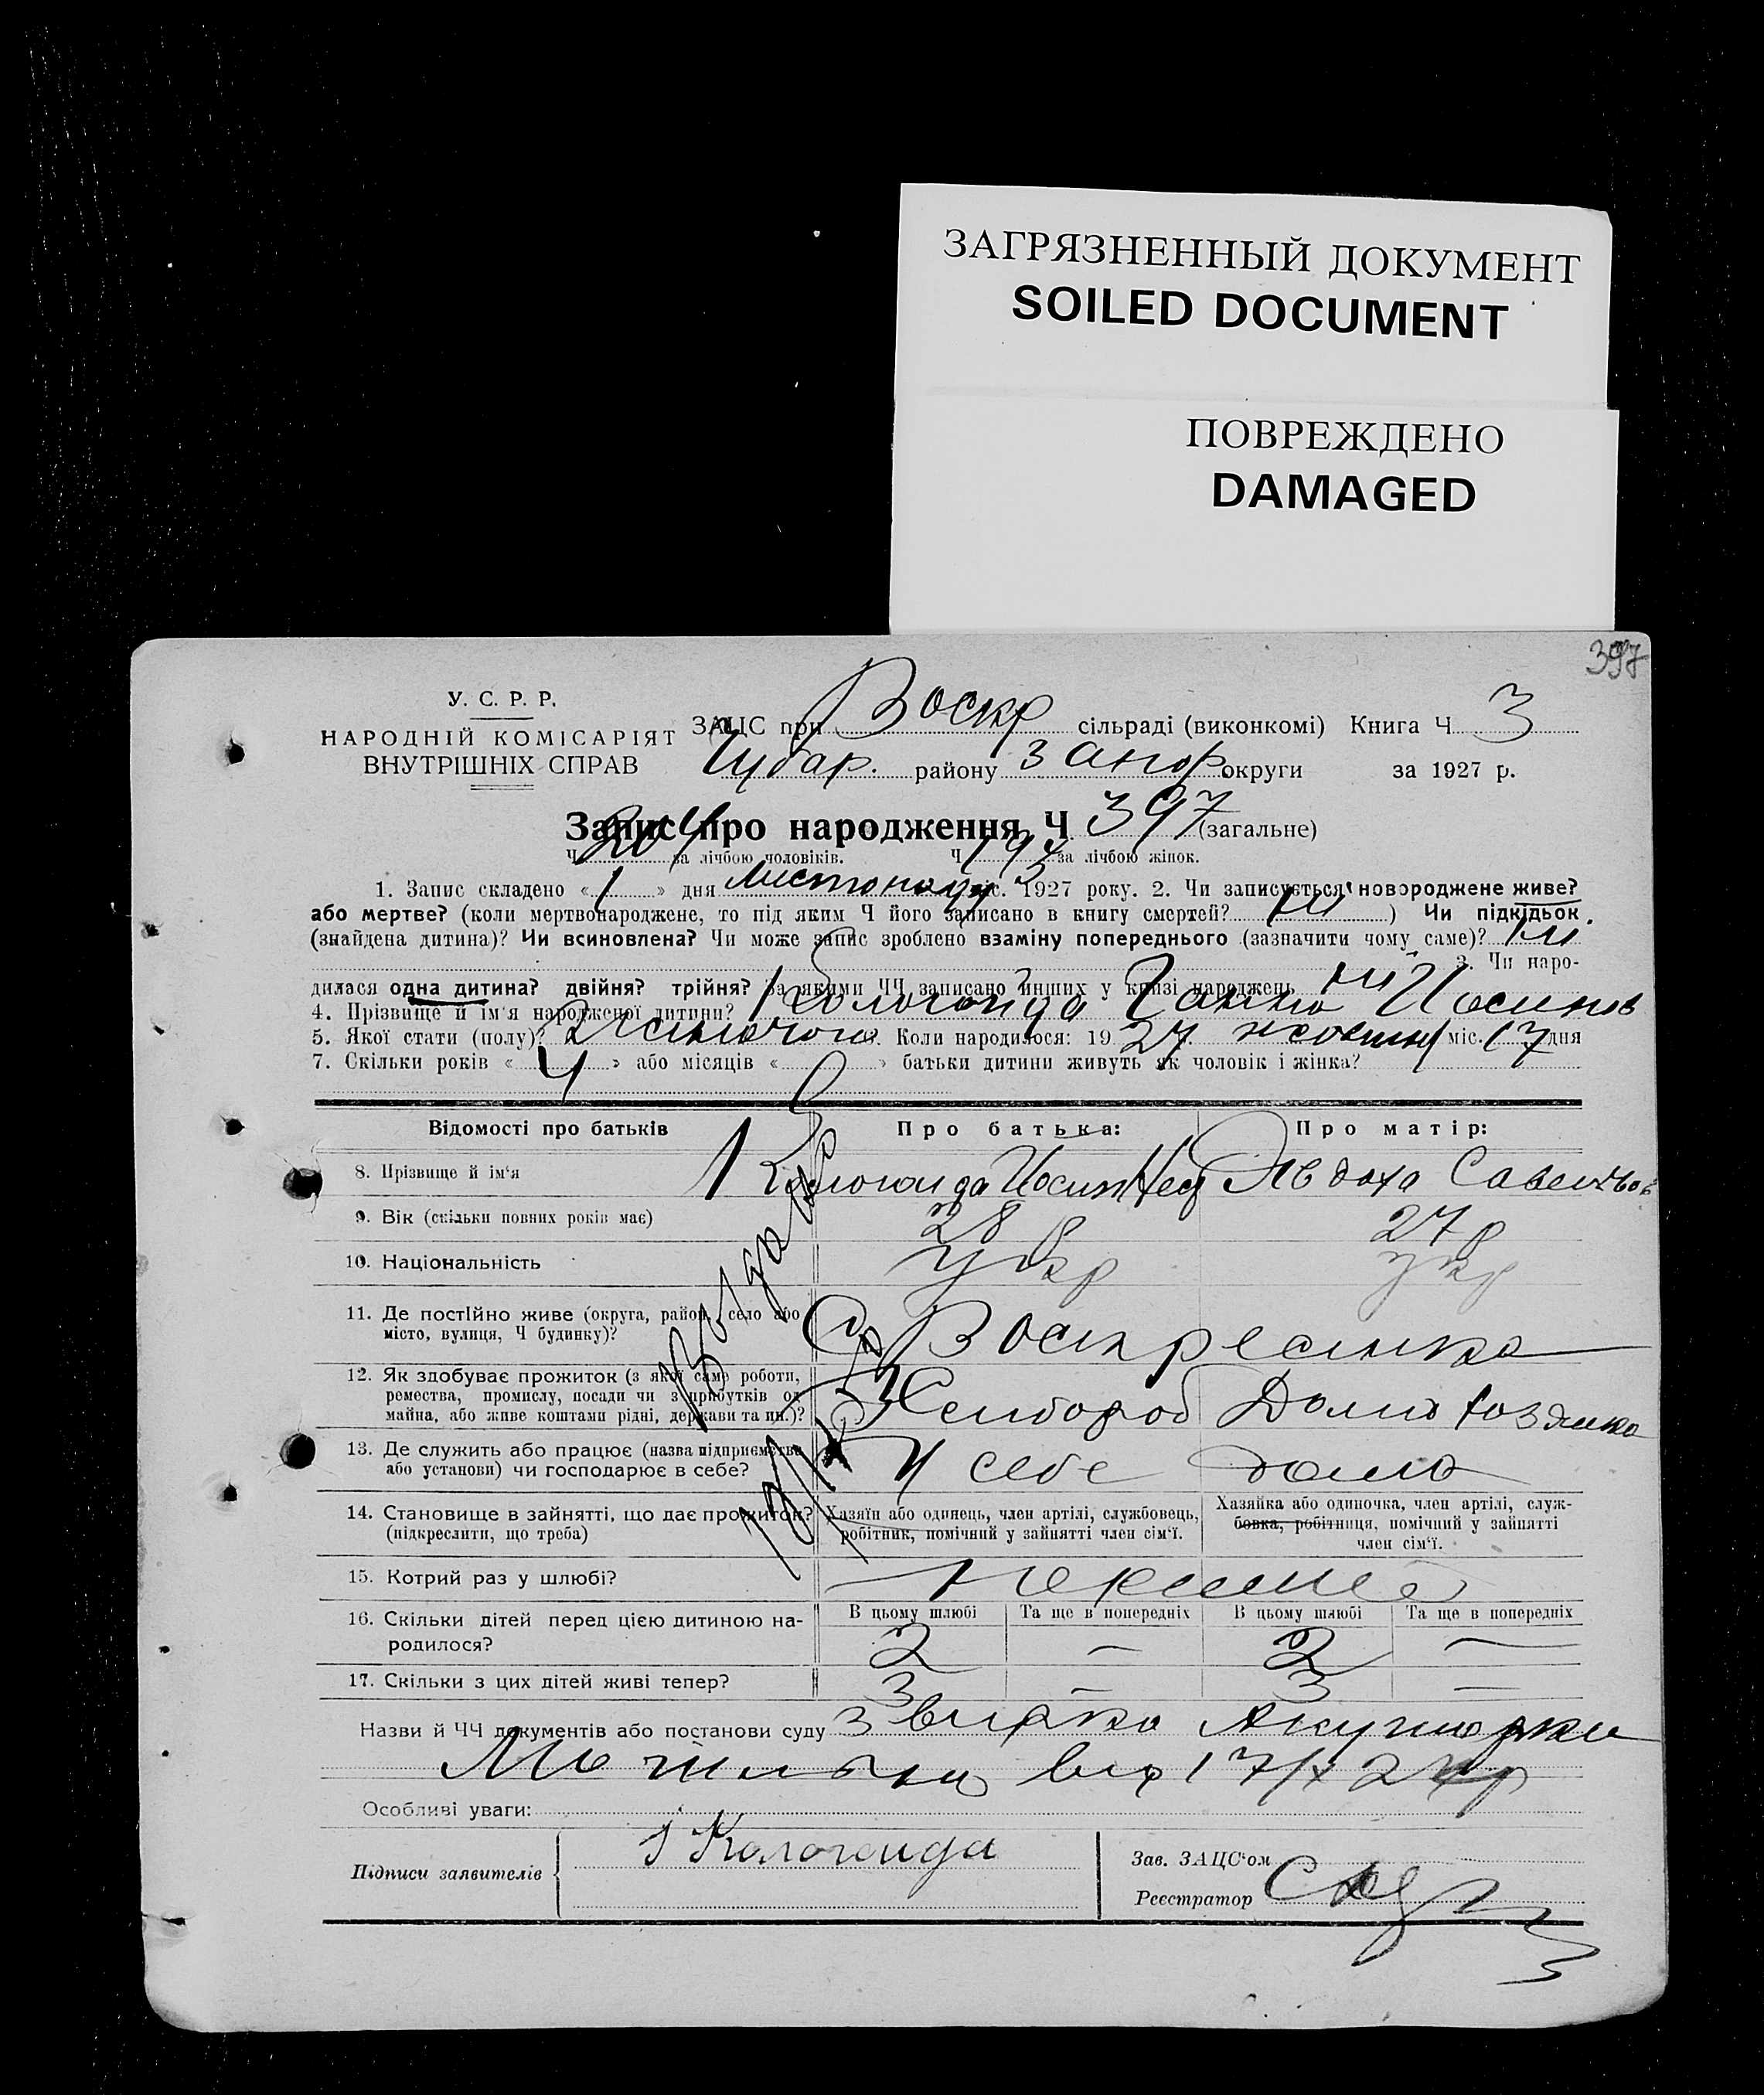 ЗАГРЯЗНЕННЫЙ ДОКУМЕНТ
SOILED DOCUMENT
ПОВРЕЖДЕНО
DAMAGED
397
У. С. Р. Р.
НАРОДНІЙ КОМІСАРІЯТ
ВНУТРІШНІХ СПРАВ
ЗАЦС при Воскр сільраді (виконкомі) Книга Ч 3
Чубар. району Запор округи за 1927 р.
Запис про народження Ч 397 (загальне)
Ч 204 за лічбою чоловіків. Ч 193 за лічбою жінок.
1. Запис складено « 1 » дня листопаду міс. 1927 року. 2. Чи записується новороджене живе?
або мертве? (коли мертвонароджене, то під яким Ч його записано в книгу смертей? ні ) Чи підкідьок
(знайдена дитина)? Чи всиновлена? Чи може запис зроблено взаміну попереднього (зазначити чому саме)? ні
3. Чи наро-
дилася одна дитина? двійня? трійня? За якими ЧЧ записано инших у кризі народжень ні
4. Прізвище й ім'я народженої дитини? Кологойда Ганна Йосипов
5. Якої стати (полу)? жіночого. Коли народилося: 1927 жовтня міс. 17 дня
7. Скільки років « 4 » або місяців « » батьки дитини живуть як чоловік і жінка?
Відомості про батьків Про батька: Про матір:
8. Прізвище й ім'я Кологойда Йосип Явдоха Савел
9. Вік (скільки повних років має) 28 р 27 р
10. Національність укр укр
11. Де постійно живе (округа, район, село або
місто, вулиця, Ч будинку)? С Воскресенка
12. Як здобуває прожиток (з якої саме роботи,
ремества, промислу, посади чи з прибутків од
майна, або живе коштами рідні, держави та ин.)? Хлібороб Домохозяйка
13. Де служить або працює (назва підприємства
або установи) чи господарює в себе? У себе дома
14. Становище в зайнятті, що дає прожиток?
(підкреслити, що треба)
Хазяїн або одинець, член артілі, службовець,
робітник, помічний у зайнятті член сім'ї.
Хазяйка або одиночка, член артілі, служ-
бовка, робітниця, помічний у зайнятті
член сім'ї.
15. Котрий раз у шлюбі?
16. Скільки дітей перед цією дитиною на-
родилося?
В цьому шлюбі Та ще в попередніх В цьому шлюбі Та ще в попередніх
2 – 2 –
17. Скільки з цих дітей живі тепер? 3 – 3 –
Назви й ЧЧ документів або постанови суду Звидка Акушорки
від 17/X 27р
Особливі уваги:
Підписи заявителів Кологойда
Зав. ЗАЦС'ом
Реєстратор